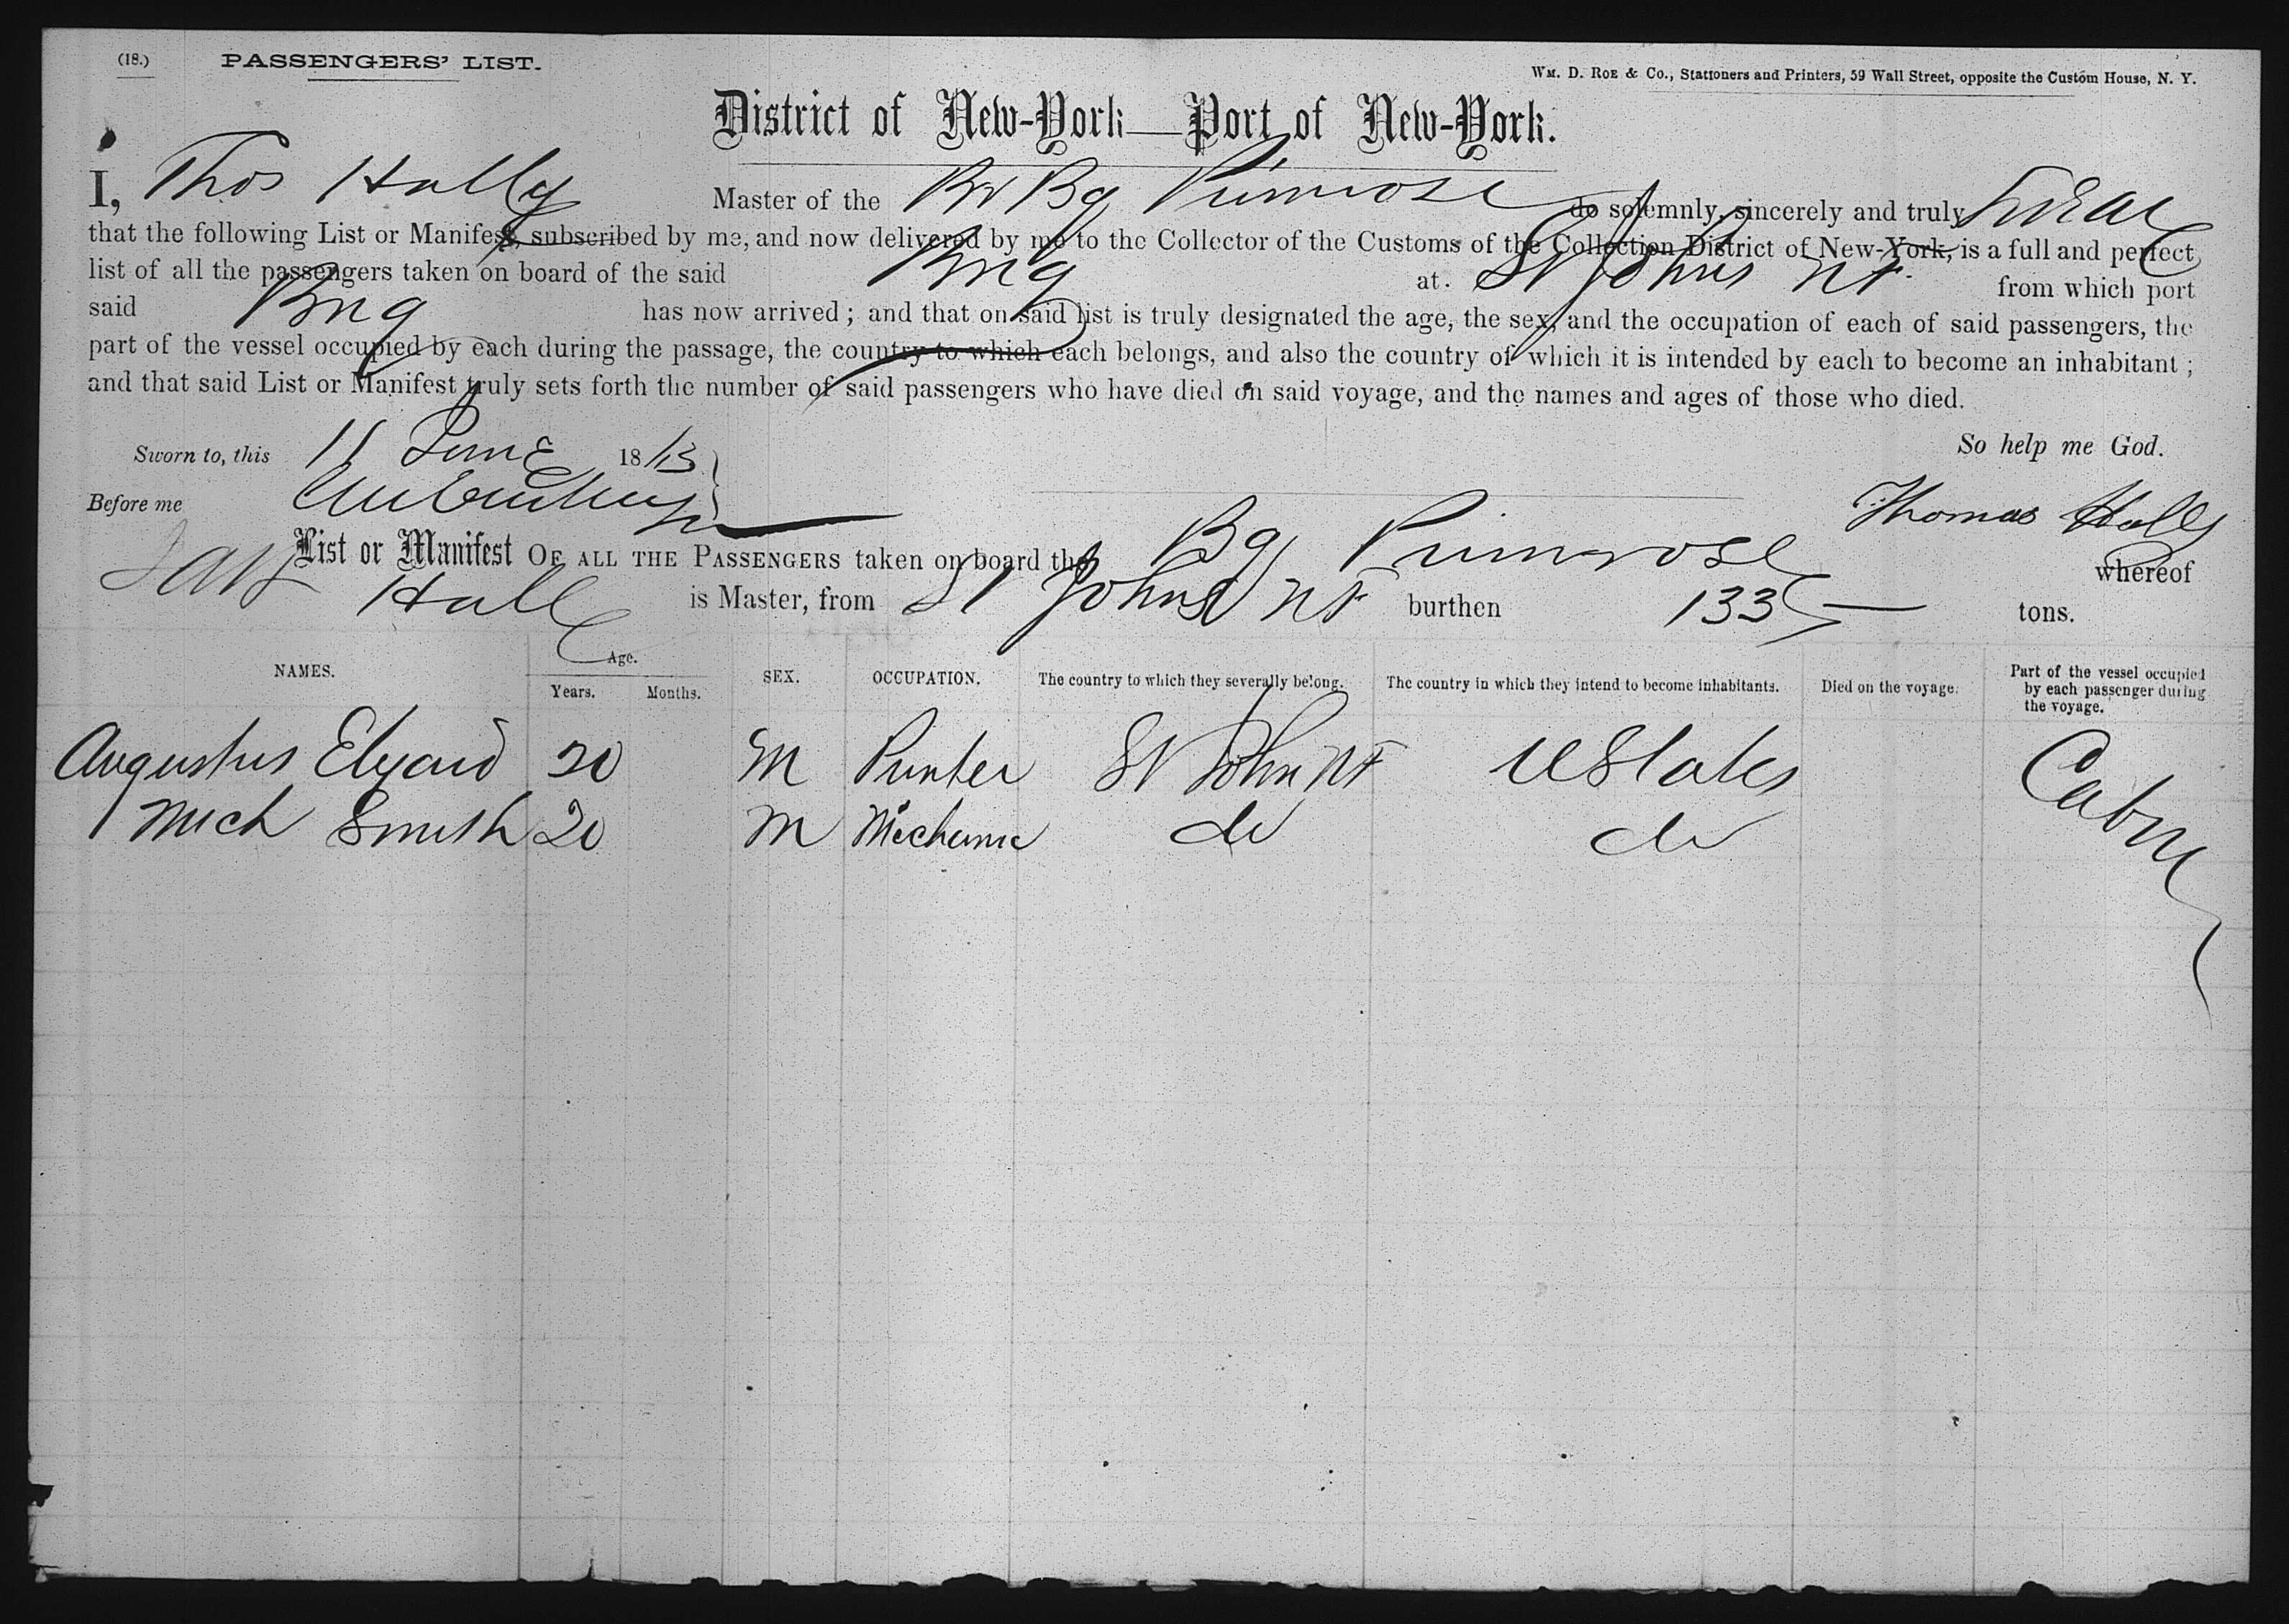 (18.) PASSENGERS' LIST. WM. D. ROE & Co., Stationers and Printers, 59 Wall Street, opposite the Custom House, N. Y.
District of New-York—Port of New-York.
I, Thos Hally Master of the Br Bg Primrose do solemnly, sincerely and truly swear
that the following List or Manifest, subscribed by me, and now delivered by me to the Collector of the Customs of the Collection District of New-York, is a full and perfect
list of all the passengers taken on board of the said Brig at St Johns NF from which port
said Brig has now arrived; and that on said list is truly designated the age, the sex, and the occupation of each of said passengers, the
part of the vessel occupied by each during the passage, the country to which each belongs, and also the country of which it is intended by each to become an inhabitant;
and that said List or Manifest truly sets forth the number of said passengers who have died on said voyage, and the names and ages of those who died.
Sworn to, this 11 June 18 So help me God.
Before me Thomas Hally
List or Manifest OF ALL THE PASSENGERS taken on board the Bg Primrose whereof
Hall is Master, from St Johns NF burthen 133 tons.
NAMES. Age. Years. Months. SEX. OCCUPATION. The country to which they severally belong. The country in which they intend to become inhabitants. Died on the voyage. Part of the vessel occupied by each passenger during the voyage.
Augustus Elyard 20 M Printer St John NF U States Cabin
Mich Smith 20 M Mechanic do do